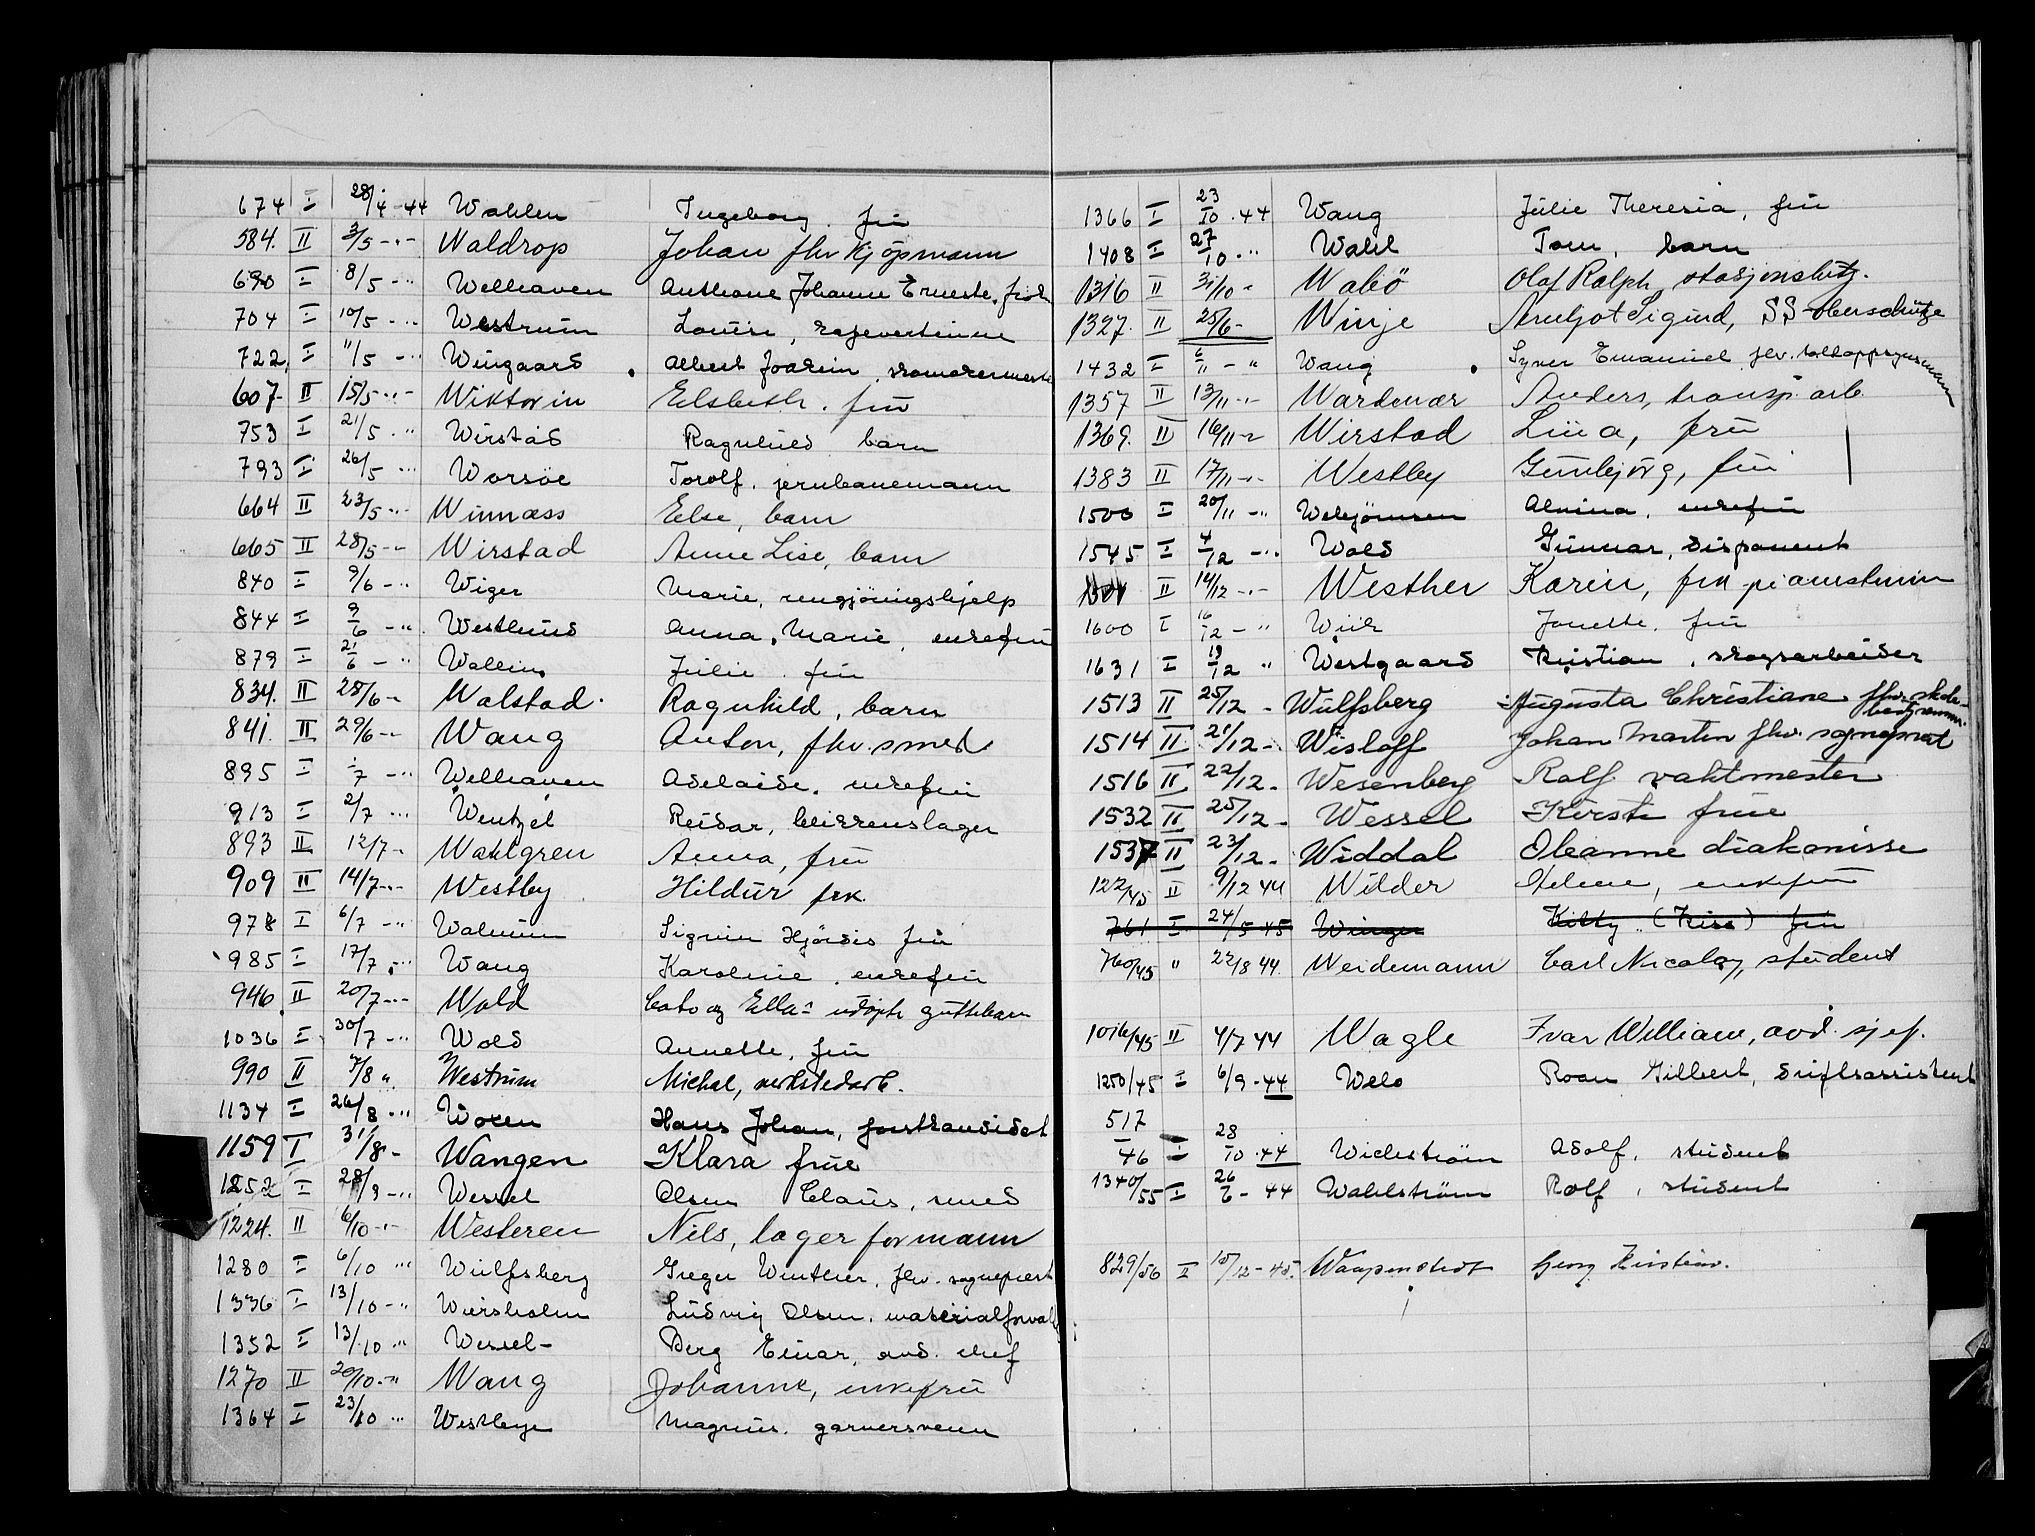 674 I 28/4-44 Wahlen Ingeborg fru
584. II 3/5 -"- Waldrop Johan fhv kjöpmann
690 I 8/5 -" Welhaven Anthone Johanne Erneste, frök
704 I 10/5 -" Westrum Louise,
722, I 11/5 -" Wingaard Albert Joakim, skomakermester
607- II 15/5 -"- Wiktorin Elsbeth. fru
753 I 21/5 -" Wirstad Ragnhild barn
793 I 26/5 -" Worsöe Torolf, jernbanemann
664 II 23/5 -" Winnæss Else, barn
665 II 28/5 -"- Wirstad Anne Lise, barn
840 I 9/6 -" Wiger Marie, rengjöringshjelp
844 I 9/6 -" Westlund Anna, Marie, enkefru
879 I 21/6 -" Wallin Julie fru
834. II 28/6 -"- Walstad. Ragnhild, barn
841. II 29/6 -"- Wang Anton, fhv. smed
895 I 1/7 -" Welhaven Adelaide, enkefru
913 I 2/7 -" Wentzel Reidar, blikkenslager
893 II 12/7- Wahlgren Anna, fru
909 II 14/7-"- Westby Hildur frk.
978 I 6/7 -" Walmum Sigrun Hjördis fru
985 I 17/7 -" Wang Karoline, enkefru
946 II 20/7 -"- Wold Cato og Ella's udöpte guttebarn
1036 I 30/7 -" Wold Annette, fru
990 II 7/8 " Westrum Michal, verkstedarb.
1134 I 26/8 -" Woxen Hans Johan, forstkandidat
1159 I 31/8 - Wangen Klara frue
1252 I 28/9 -" Wessel Olsen Claus, smed
1224. II 6/10 -"- Westeren Nils, lagerformann
1280 I 6/10 " Wulfsberg Greger Winther, fhv. sogneprest
1336 I 13/10 -" Wiersholm Ludvig Olsen, materialforvalt
1352 I 13/10 " Wessel- Berg Einar, avd. chef
1270 II 20/10 -" Wang Johanne, enkefru
1364 I 23/10 " Westbye Magnus. garversvenn
1366 I 23/10 .44 Wang Julie Theresia, fru
1408 I 27/10 " Wahl Tom, barn
1316 II 31/10 - Wabö Olaf Ralph, stasjonsbetj.
1327. II 25/6 - Winje Arnljot Sigurd, SS-oberschütze
1432 I 6/11 - " Wang Syver Emanuel fhv. tolloppsynsmann
1357 II 13/11 -"- Wardenær Anders, transp. arb.
1369. II 16/11 -"- Wirstad Lina, fru
1383 II 17/11 -"- Westby Gunbjörg, fru
1500 I 20/11 -" Webjörnsen Alvina, enkefru
1545 I 4/12 -" Wold Gunnar, disponent
II 14/12 -"- Westher Karin, frk pianistinne
1600 I 16/12 - " Wiik Jonette. fru
1631 I 19/12 " Westgaard Kristian, skogsarbeider
1513 II 25/12 - Wulfsberg Augusta Christiane fhv. skolebestyrerinne.
1514 II 21/12 - Wisloff Johan Martin fhv. sogneprest
1516 II 22/12 - Wesenberg Rolf vaktmester
1532 II 25/12 - Wessel Kirsti frue
1537 II 23/12 - Widdal Oleanne diakonisse
122/45 II 9/12 44 Wilder Helene, enkefru
761 I 24/5-45 Winger Kitty (Kiss) fru
760/45 " 22/8 44. Weidemann Carl Nicolay, student
1016/45 II 4/7 44 Wagle Ivar William, avd. sjef.
1250/45 I 6/9 -44 Welo Roan Gilbert, driftsassistent
517/46 I 28/10 .44 Wichstrøm Adolf, student
1340/55 I 26/6 - 44 Wahlstrøm Rolf, student
829/56 I 15/12 - 45. Waapenstedt Georg Kristian.